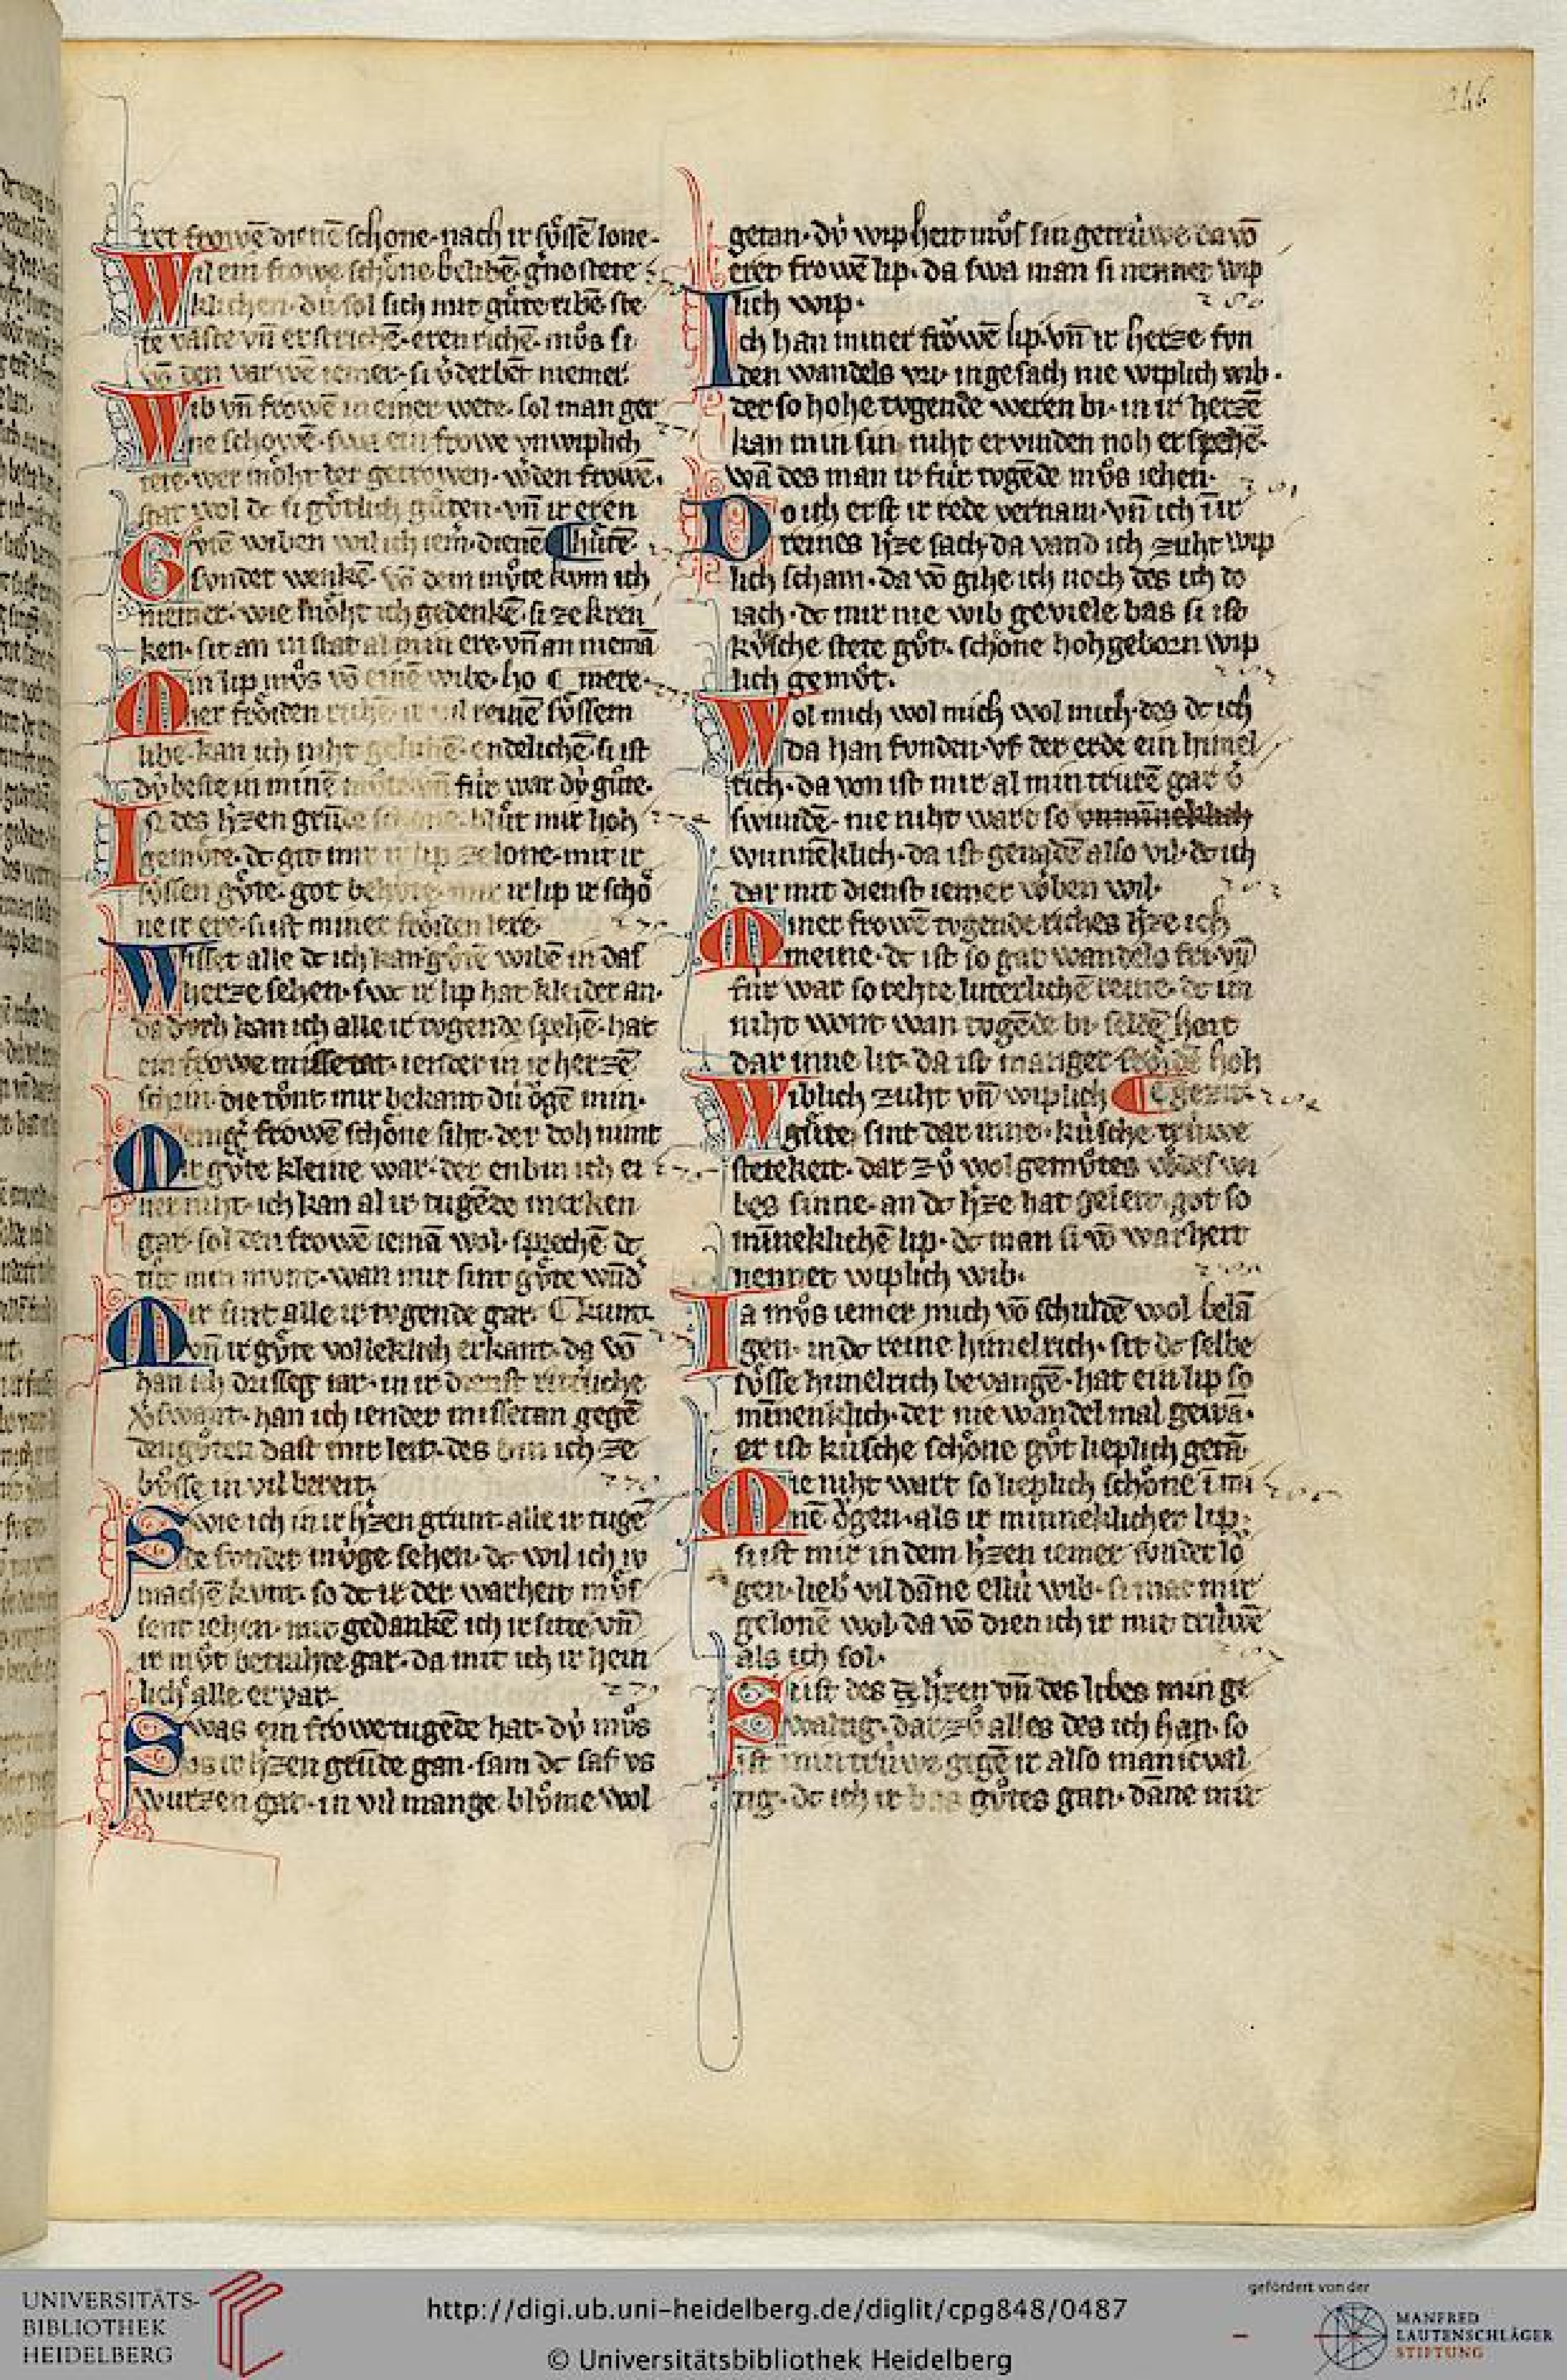 246
ret frowē dienē schone· nach ir sůssē lone·
Wil ein frowe schöne belibē· gůnstete
klichen· dú sol sich mit gůte ribē· ste
te vaste vn̄ er strichē· eren richē· můs si
vō den varwe iemer· si v̾derbēt niemer·
Wib vn̄ frowē in einer wete· sol man ger
ne schowē· swa ein frowe vnwiplich
tete· wer möht der getrowen· v̾den frowē·
stat wol dc si gůtlich gůten· vn̄ ir eren
Gůtē wiben wil ich iem̾· dienē hůtē·
sunder wenkē· vō dem můte kum ich
niemer· wie möht ich gedenkē· si ze kren
ken· sit an in stat al min ere· vn̄ an niemā
Min lip můs vō einē wibe· ho mere·
her fröiden richē· ir vil reinē sůssem
libe· kan ich niht gelichē· endelichē· si ist
dú beste in minē můte· vn̄ für war dú gůte·
Ir des h̾zen grüne schone· blůt mir hoh
gemůte· dc git mir ir lip ze lone· mit ir
sůssen gůte· got behůte· mir ir lip ir schö
ne ir ere· si ist miner fröiden lere·
Wisset alle dc ich kan gůtē wibē in das
herze sehen· swc ir lip hat kleider an·
da dvrh kan ich alle ir tvgende spehē· hat
ein frowe missetat· iender in ir herzē
schrin· die tůnt mir bekant dú ögē min·
Maniger frowē schöne siht· der doh nimt
ir gůte kleine war· der enbin ich ei
ner niht· ich kan al ir tugēde merken
gar· sol den frowē iemā wol· sprechē dc
tůt min mvnt· wan mir sint gůte wūd
Mir sint alle ir tvgende gar· kunt
vn̄ ir gůte volleklich erkant· da vō
han ich drisseg iar· in ir dienst ritterliche
v̾swant· han ich iender missetan gegē
den gůten dast mir leit· des bin ich ze
bůsse in vil bereit·
Swie ich in ir h̾zen grunt· alle ir tugē
de sunder möge sehen· dc wil ich iv
machē kunt· so dc ir der warheit můs
sent iehen· mit gedankē ich ir sitte vn̄
ir můt betrahte gar· da mit ich ir heim
lich̾ alle ervar·
Swas ein frowe tugēde hat· dú můs
vs ir h̾zen grūde gan· sam dc saf vs
wurzen gat· in vil mange blůme wol
getan· dú wipheit můs sin getrüwe da vō
eret frowē lip· da swa man si nennet wip
lich wip·
Ich han miner frowē lip· vn̄ ir herze fun
den wandels vri· in gesach nie wiplich wib·
der so hohe tvgende weren bi· in ir herzē
kan min sin niht ervinden noh erspehē·
wā des man ir für tvgēde můs iehen·
Do ich erst ir rede vernam· vn̄ ich ī ir
reines h̾ze sach· da vand ich zuht wip
lich scham· da vō gihe ich noch des ich do
iach· dc mir nie wib geviele bas si ist
küsche stete gůt· schöne hohgeborn wip
lich gemůt·
Wol mich wol mich wol mich· des dc ich
da han funden· vf der erde ein himel
rich· da von ist mir al min trurē gar v̾
swundē· nie niht wart so vnmīneklich
wunneklich· da ist genadē also vil· dc ich
dar mit dienst iemer vöben wil·
Miner frowē tvgende riches h̾ze ich
meine· dc ist so gar wandels fri· vn̄
für war so rehte luterlichē reine· dc im
niht wont wan tvgēde bi· seldē hort
dar inne lit· da ist maniger fröidē hoh
Wiblich zuht vn̄ wiplich gezit·
gůte· sint dar inne· küsche trüwe
stetekeit· dar zů wol gemůtes v̾des wi
bes sinne· an dc h̾ze hat geleit· got so
mīneklichē lip· dc man si vō warheit
nennet wiplich wib·
Ia můs iemer mich vō schuldē wol belā
gen· in dc reine himelrich· sit dc selbe
sůsse himelrich bevangē· hat ein lip so
minenklich· der nie wandel mal gewā·
er ist küsche schöne gůt lieplich getā·
Mie niht wart so lieplich schöne ī mi
nē ögen· als ir minneklicher lip·
si ist mir in dem h̾zen iemer sunder lö
gen· lieb̾ vil dāne ellú wib· si mac mir
gelonē wol· da vō dien ich ir mit trüwē
als ich sol·
Si ist des h̾zen vn̄ des libes min ge
waltig· dar zů alles des ich han· so
ist min trüwe gegē ir also manicval
tig· dc ich ir bas gůtes gan· dāne mir
UNIVERSITÄTS-
BIBLIOTHEK
HEIDELBERG
http://digi.ub.uni-heidelberg.de/diglit/cpg848/0487
© Universitätsbibliothek Heidelberg
gefördert von der
MANFRED
LAUTENSCHLÄGER
STIFTUNG